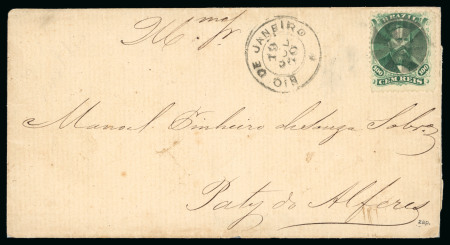 BRAZIL
100 CEM REIS 100
RIO DE JANEIRO
Manoel Pinheiro de Souza Sobr.
Paty do Alferes